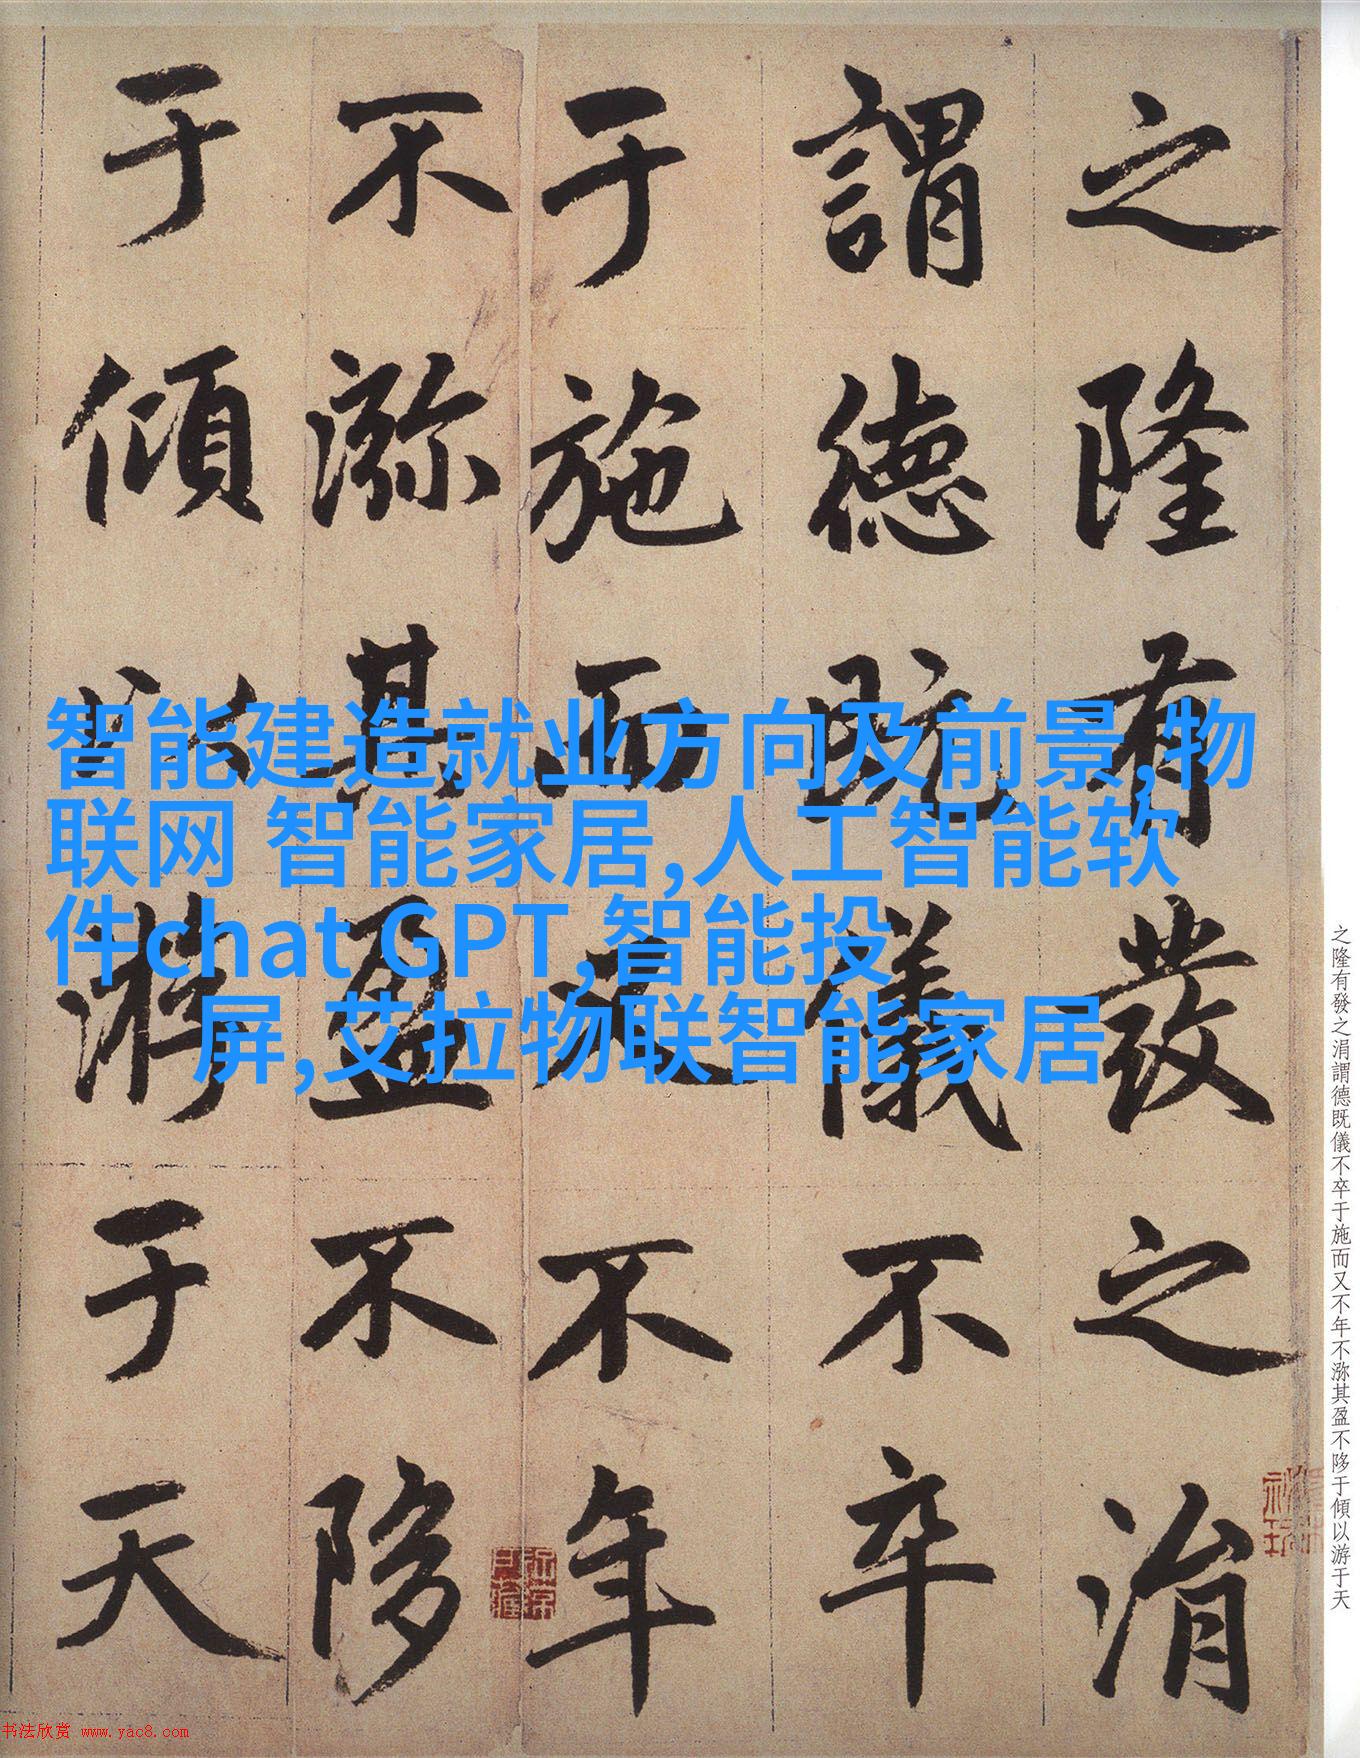 之隆有發之涓
謂德既儀不卒
于施而又不年
不㳽其盈不陊
于傾以游于天
智能建造就业方向及前景,物
联网 智能家居,人工智能软
件chat GPT,智能投
屏,艾拉物联智能家居
之隆有發之涓謂德既儀不卒于施而又不年不㳽其盈不陊于傾以游于天
书法欣赏 www.yac8.com